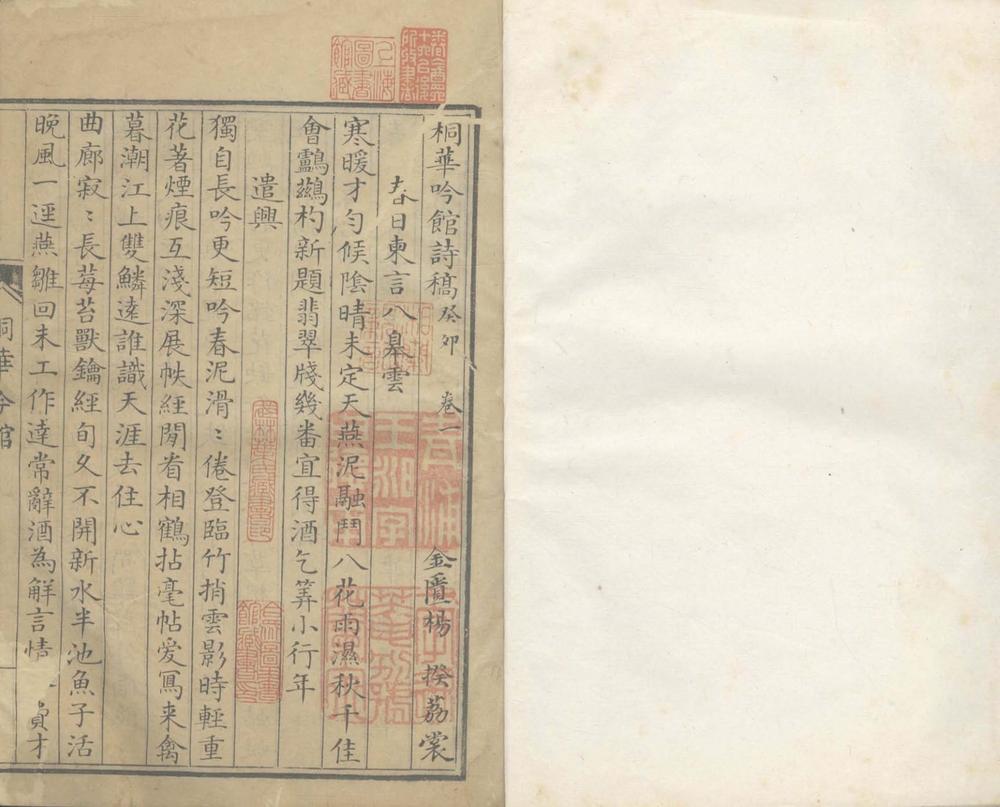 桐華吟館詩稿 癸卯 卷一 金匱楊 揆荔裳
春日柬言八臯雲
寒暖才勻候陰晴未定天燕泥融鬥八花雨濕秋千佳
會鸕鷀杓新題翡翠牋幾番宜得酒乞筭小行年
遣興
獨自長吟更短吟春泥滑〻倦登臨竹捎雲影時輕重
花著煙痕互淺深展帙經閒看相鶴拈毫帖愛寫来禽
暮潮江上雙鱗遠誰識天涯去住心
曲廊寂〻長莓苔獸鑰經旬久不開新水半池魚子活
晚風一逕燕雛回未工作達常辭酒為解言情 負才
桐華吟館
上海圖書館藏